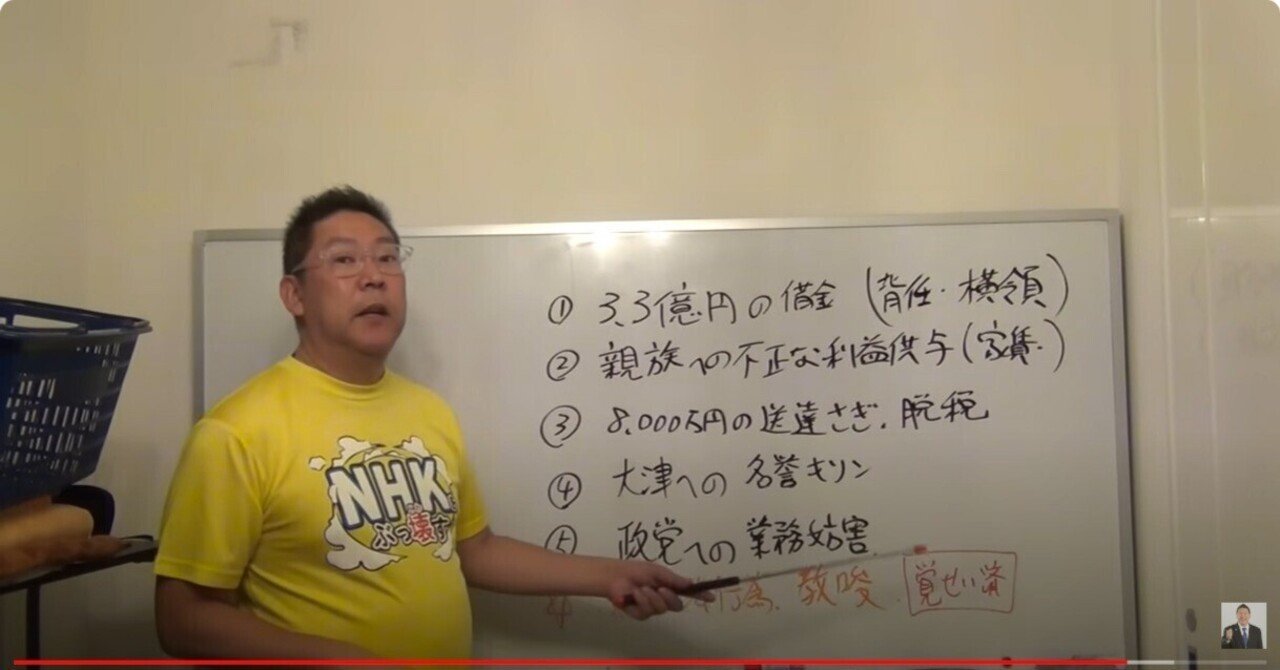 ① 3.3億円の借金(背任・横領)
② 親族への不正な利益供与(家賃・)
③ 8,000万円の送達さぎ・脱税
④ 大津への名誉キソン
⑤ 政党への業務妨害
行為、教唆、覚せい済
NHKを
ぶっ壊す